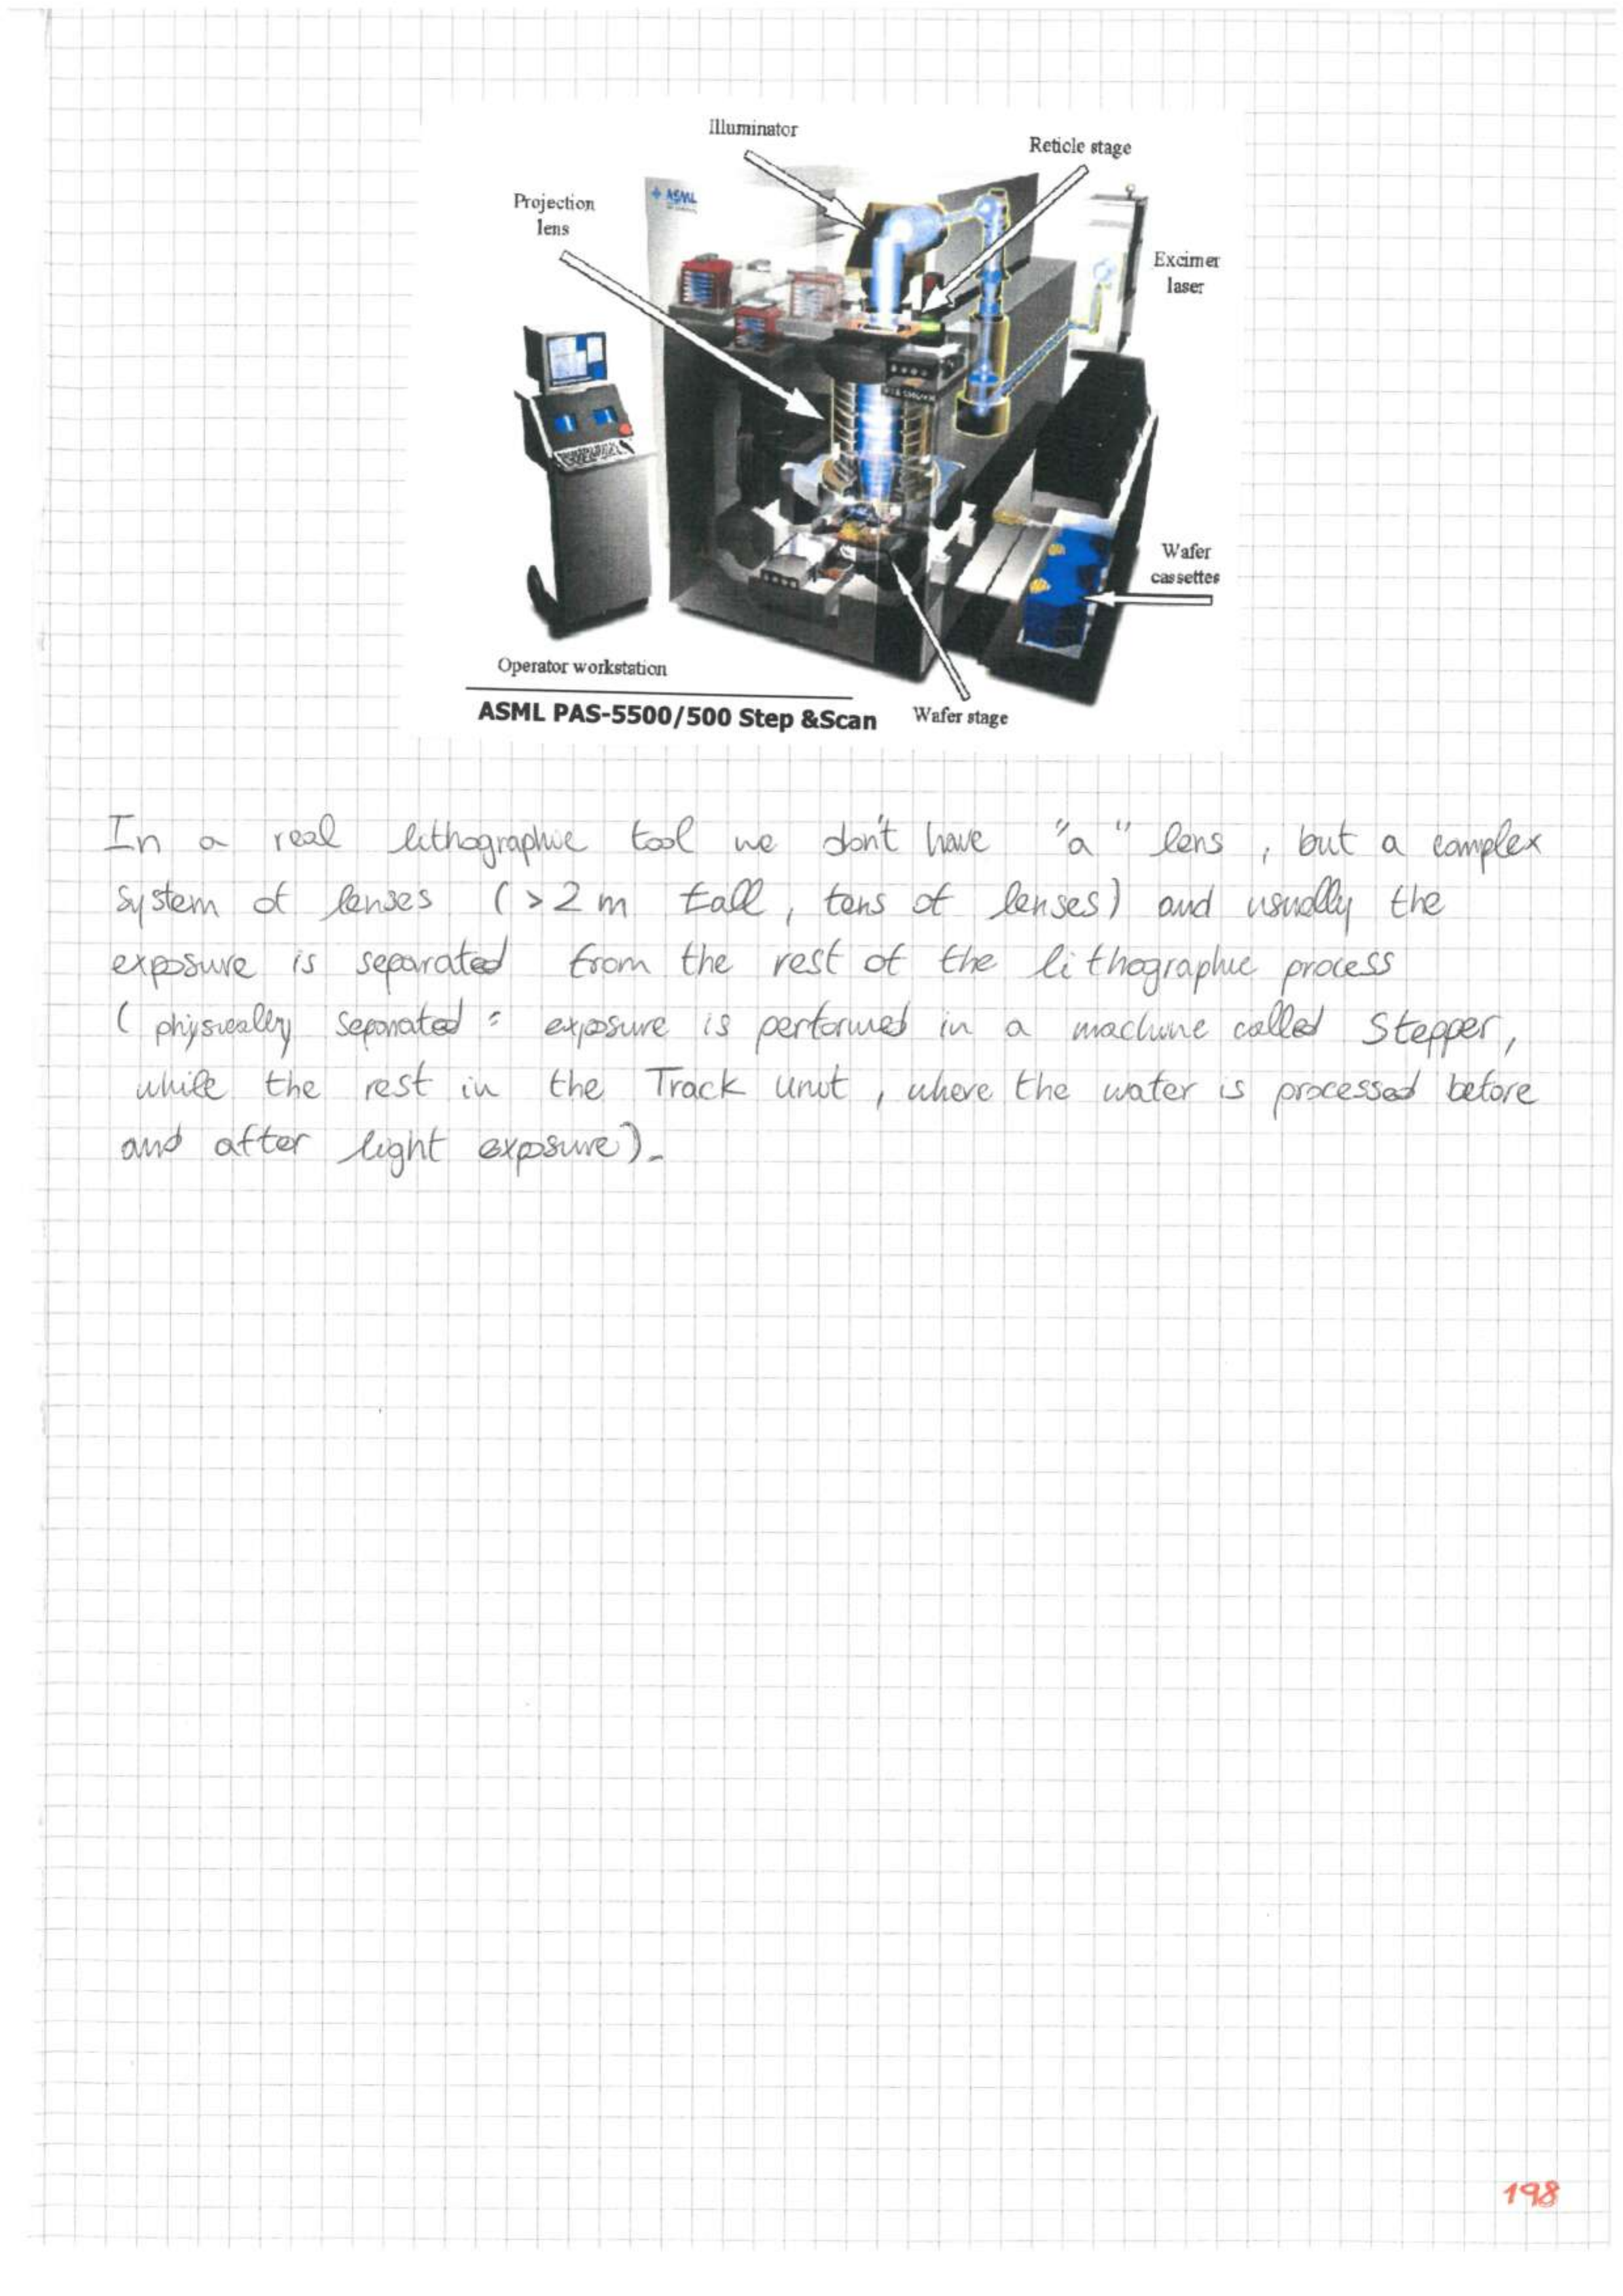 Illuminator
Reticle stage
Projection
lens
ASML
Excimer
laser
Wafer
cassettes
Operator workstation
ASML PAS-5500/500 Step &Scan
Wafer stage
In a real lithographic tool we don't have "a" lens, but a complex
system of lenses (>2m tall, tens of lenses) and usually the
exposure is separated from the rest of the lithographic process
(physically separated: exposure is performed in a machine called Stepper,
while the rest in the Track unit, where the wafer is processed before
and after light exposure).
198